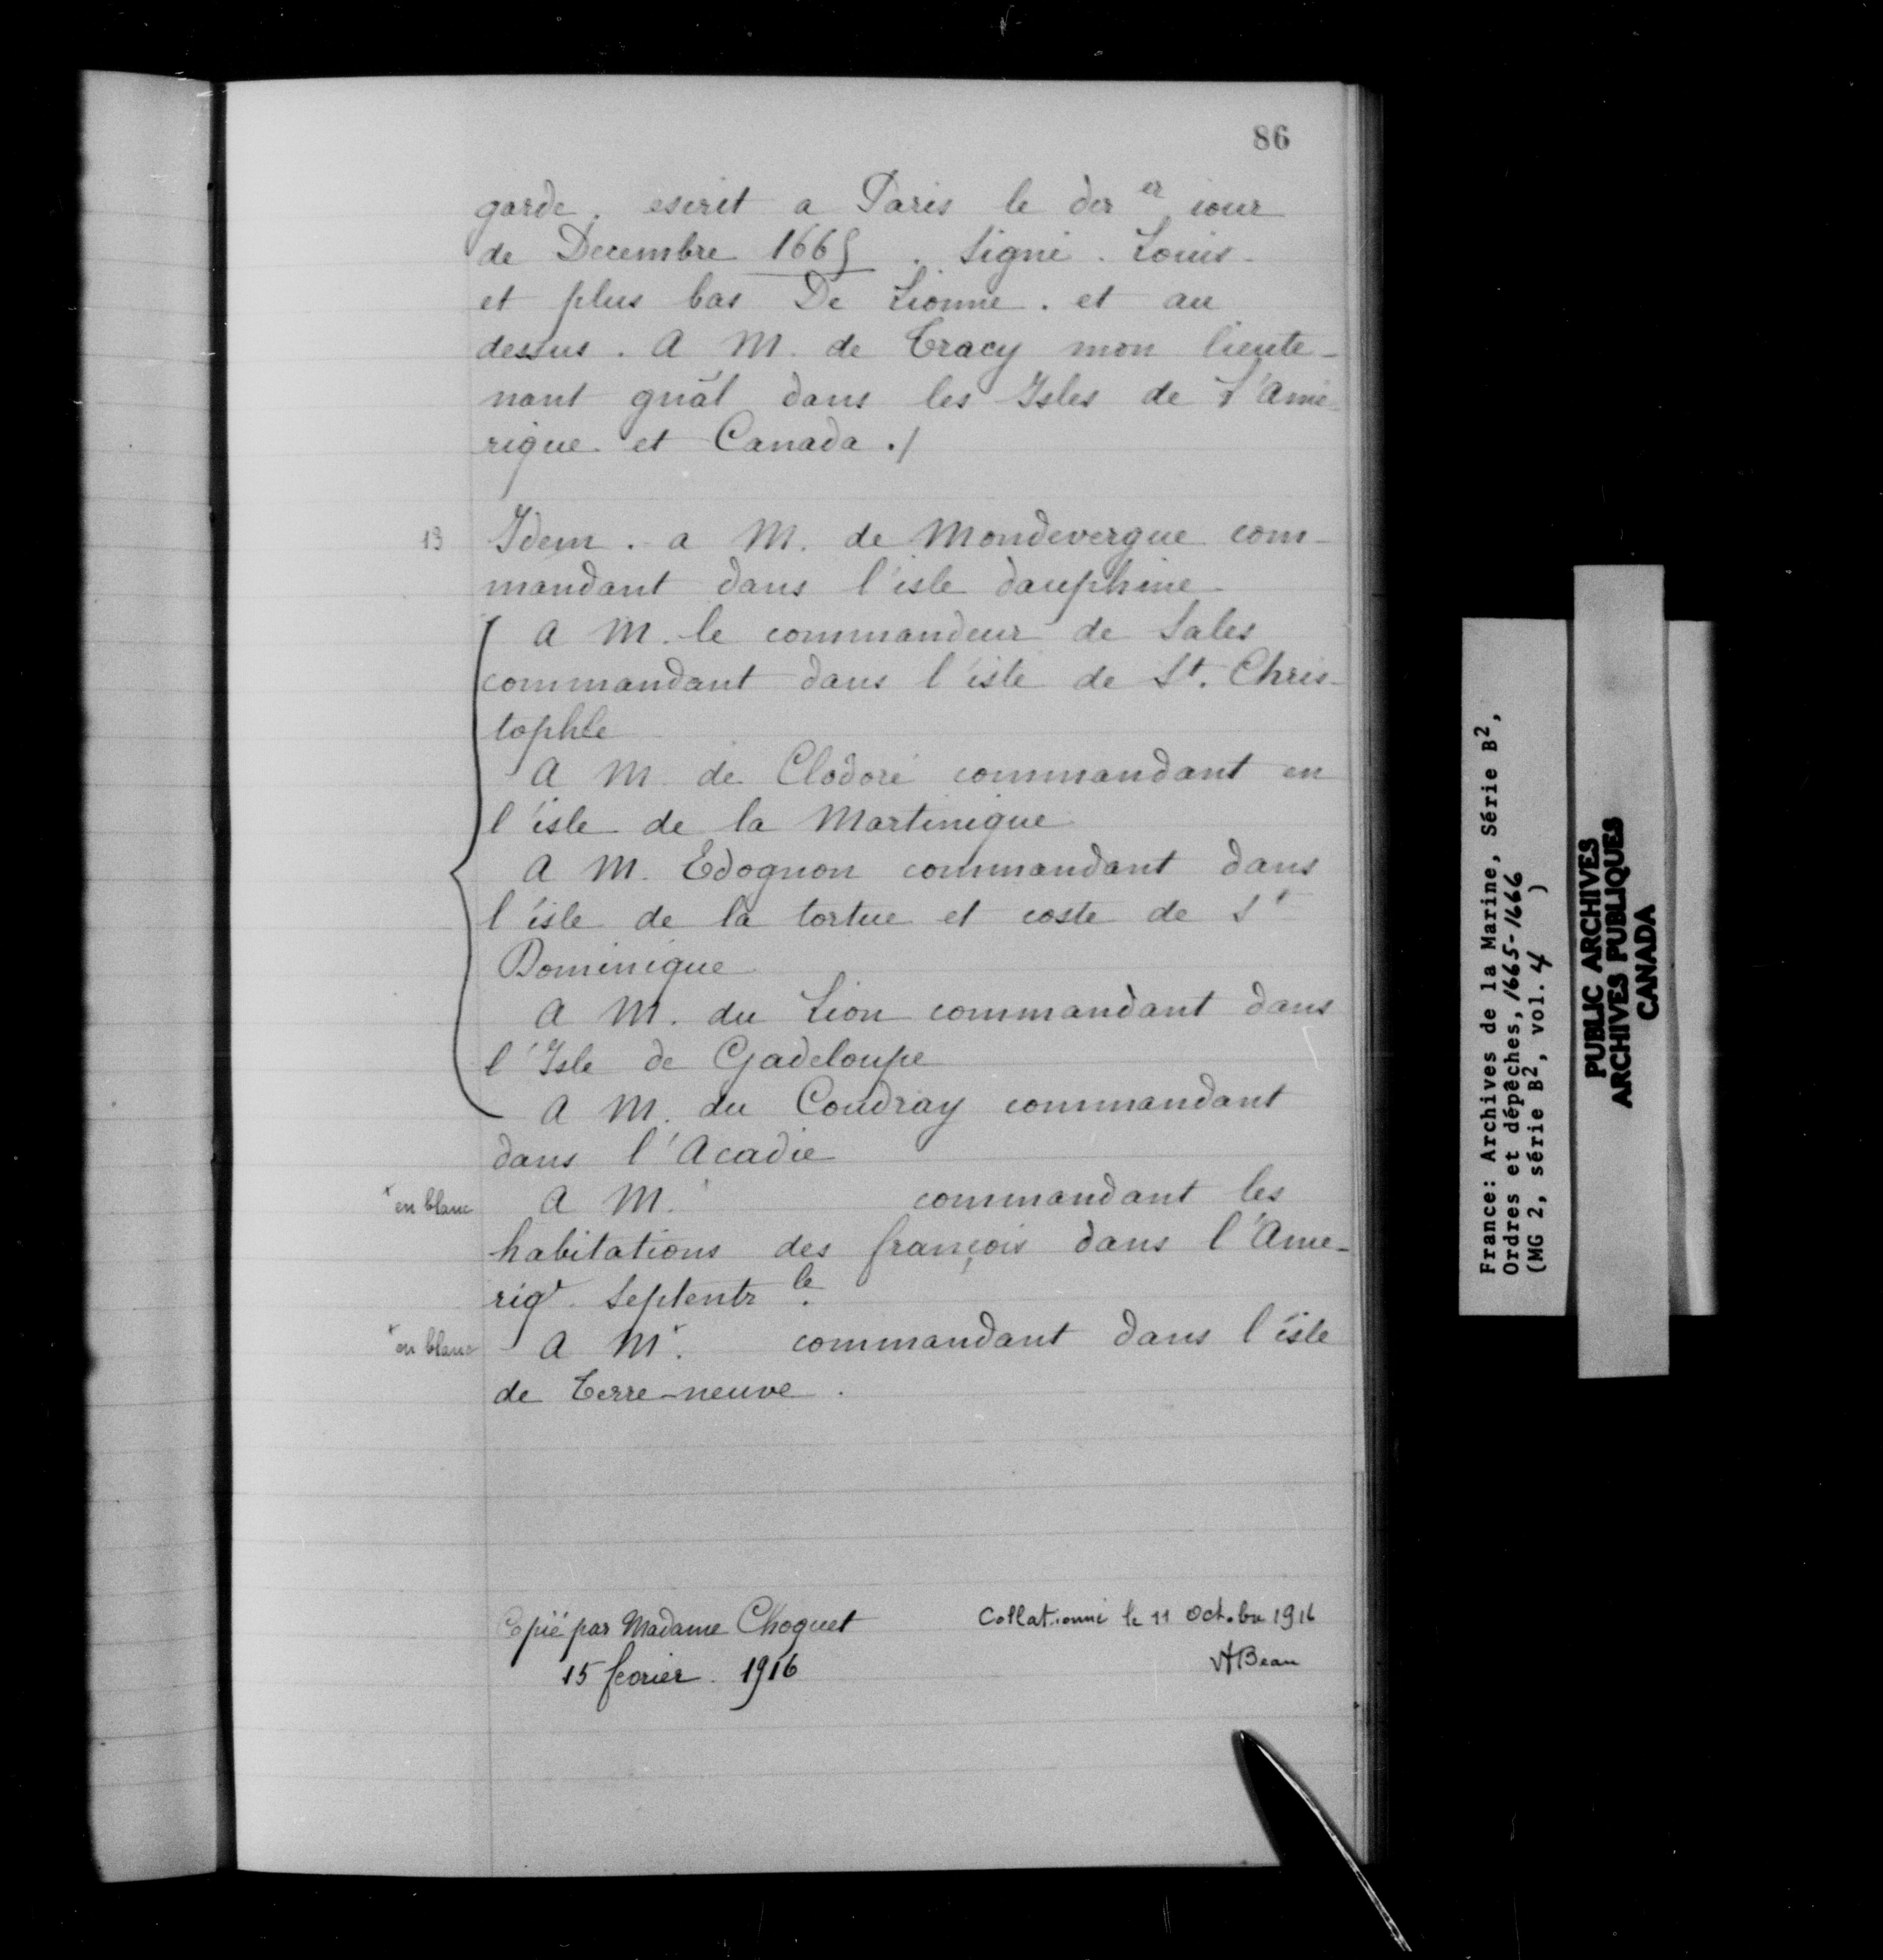 86
garde. escrit a Paris le der er iour
de Decembre 1665. Signé. Louis.
et plus bas De Lionne. et au
dessus. A M. de Tracy mon lieute-
nant gnãl dans les Isles de l'Amé-
rique et Canada ./
13 Idem. a M. de Mondevergue com-
mandant dans l'isle dauphine
A M. le commandeur de Sales
commandant dans l'isle de St. Chris-
tophle
A M. de Clodoré commandant en
l'isle de la Martinique
A M. Edognon commandant dans
l'isle de la tortue et coste de St
Dominique
A M. du Lion commandant dans
l'Isle de Gadeloupe
A M. du Coudray commandant
dans l'Acadie
x en blanc A M. x commandant les
habitations des françois dans l'Ame-
riqe Septentr le.
x en blanc A M x. commandant dans l'isle
de Terre-neuve.
Copié par Madame Choquet
15 février. 1916
Collationné le 11 Octobre 1916
ABeau
France: Archives de la Marine, Série B2,
Ordres et dépêches, 1665-1666
(MG 2, série B2, vol. 4 )
PUBLIC ARCHIVES
ARCHIVES PUBLIQUES
CANADA